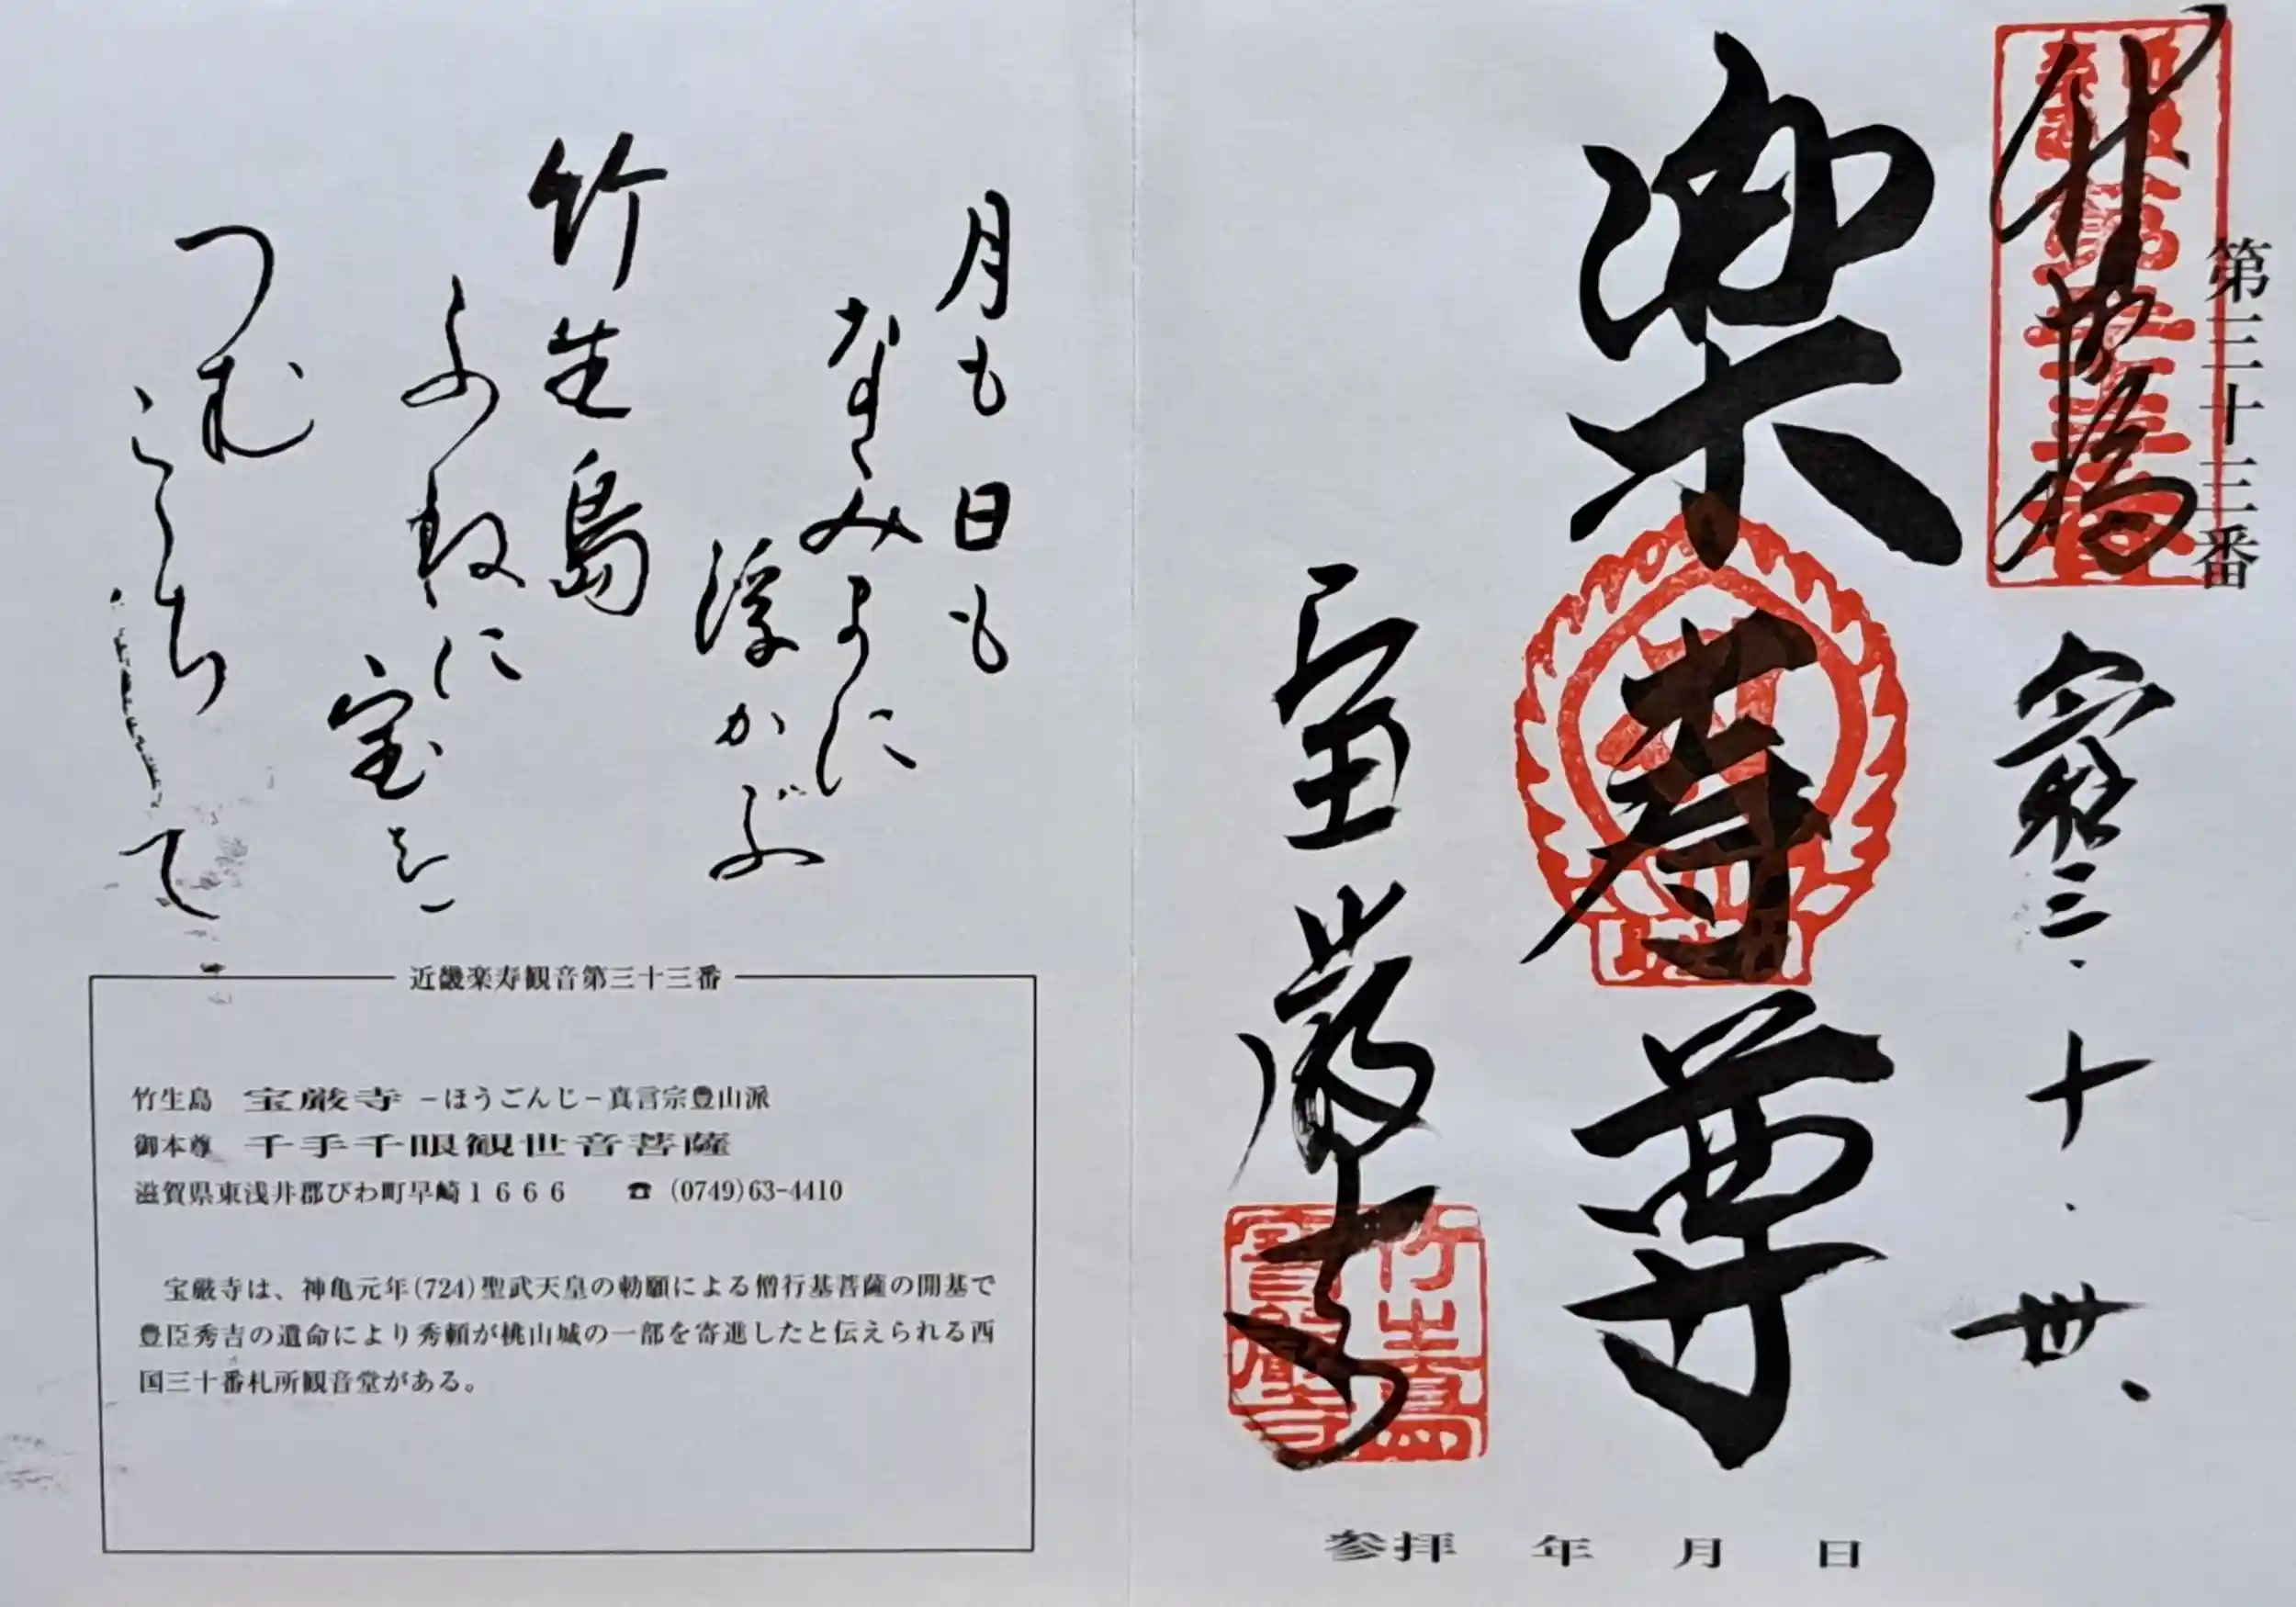 第三十三番
竹生嶋
令和三.十.丗.
楽寿尊
宝厳寺
参拝 年 月 日
月も日も
なみまに
浮かぶ
竹生島
ふねに
宝を
つむ
こゝちして
近畿楽寿観音第三十三番
竹生島 宝厳寺 −ほうごんじ−真言宗豊山派
御本尊 千手千眼観世音菩薩
滋賀県東浅井郡びわ町早崎１６６６ ☎ (0749)63-4410
宝厳寺は、神亀元年(724)聖武天皇の勅願による僧行基菩薩の開基で
豊臣秀吉の遺命により秀頼が桃山城の一部を寄進したと伝えられる西
国三十番札所観音堂がある。